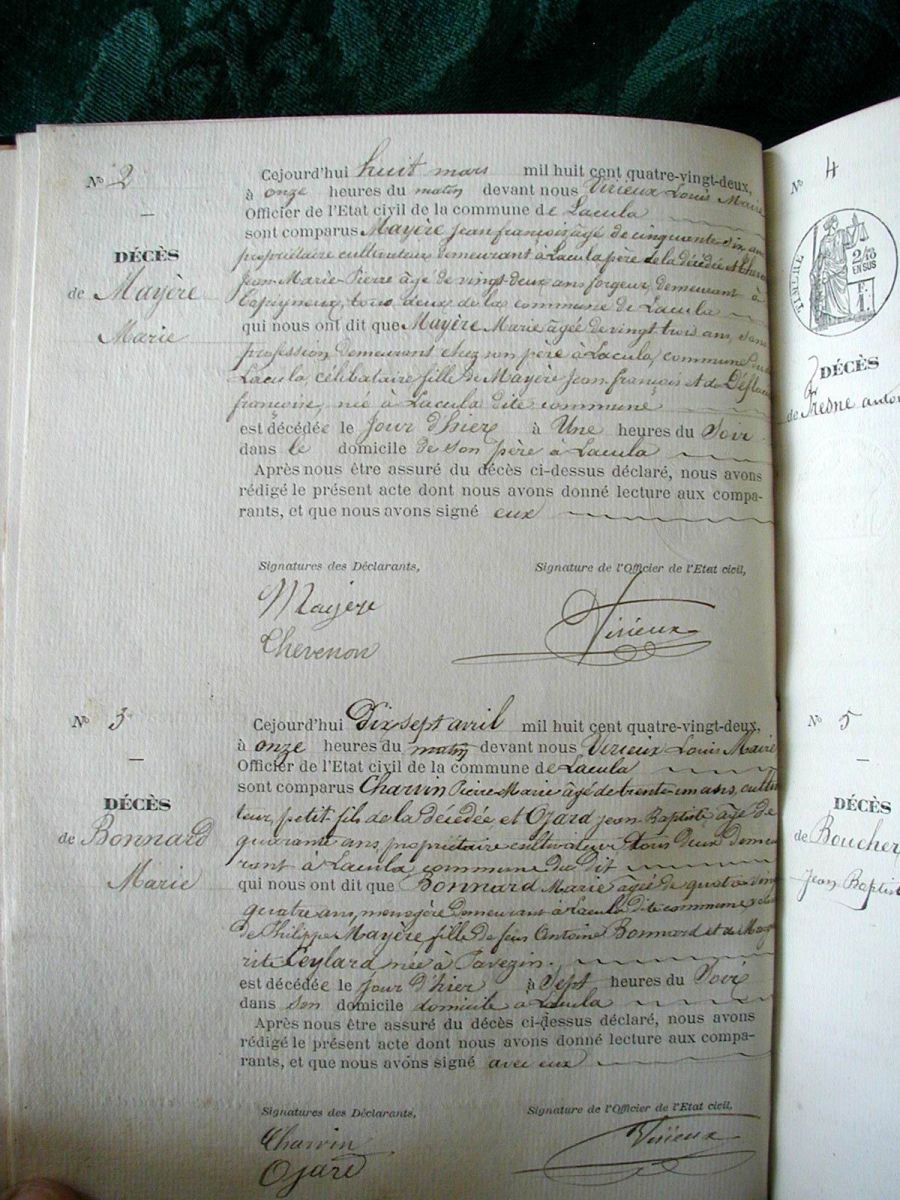 No 2
DÉCÈS
de Mayère
Marie
Cejourd'hui huit mars mil huit cent quatre-vingt-deux,
à onze heures du matin devant nous Virieux Louis Maire
Officier de l'Etat civil de la commune de Lacula
sont comparus Mayère Jean françois âgé de cinquante six ans
propriétaire cultivateur demeurant à Lacula père de la décédée et
Jean Marie Pierre âgé de vingt-deux ans forgeur demeurant à
tous deux de la commune de Lacula
qui nous ont dit que Mayère Marie âgée de vingt trois ans, sans
profession demeurant chez son père à Lacula, commune du dit
Lacula, célibataire fille de Mayère Jean françois et de
françoise, née à Lacula dite commune
est décédée le jour d'hier à Une heures du Soir
dans le domicile de son père à Lacula
Après nous être assuré du décès ci-dessus déclaré, nous avons
rédigé le présent acte dont nous avons donné lecture aux compa-
rants, et que nous avons signé eux
Signatures des Déclarants, Signature de l'Officier de l'Etat civil,
Mayère
Chevenon
Virieux
No 3
DÉCÈS
de Bonnard
Marie
Cejourd'hui Dix sept avril mil huit cent quatre-vingt-deux,
à onze heures du matin devant nous Virieux Louis Maire
Officier de l'Etat civil de la commune de Lacula
sont comparus Charvin Pierre Marie âgé de trente un ans, culti
teur, petit fils de la décédée et Ojard Jean Baptiste âgé de
quarante ans, propriétaire cultivateur tous deux demeu
rant à Lacula commune du dit
qui nous ont dit que Bonnard Marie âgée de quatre ving
quatre ans, menagère demeurant à Lacula dite commune
de Philippe Mayère fille de feus Antoine Bonnard et de Marg
rite Peylard née à Pavezin.
est décédée le jour d'hier à Sept heures du Soir
dans son domicile domicile à Lacula
Après nous être assuré du décès ci-dessus déclaré, nous avons
rédigé le présent acte dont nous avons donné lecture aux compa-
rants, et que nous avons signé avec eux
Signatures des Déclarants, Signature de l'Officier de l'Etat civil,
Charvin
Ojard
Virieux
No 4
TIMBRE
2/10
EN SUS
F.
1
DÉCÈS
de Fresne
No 5
DÉCÈS
de Boucher
Jean Baptist